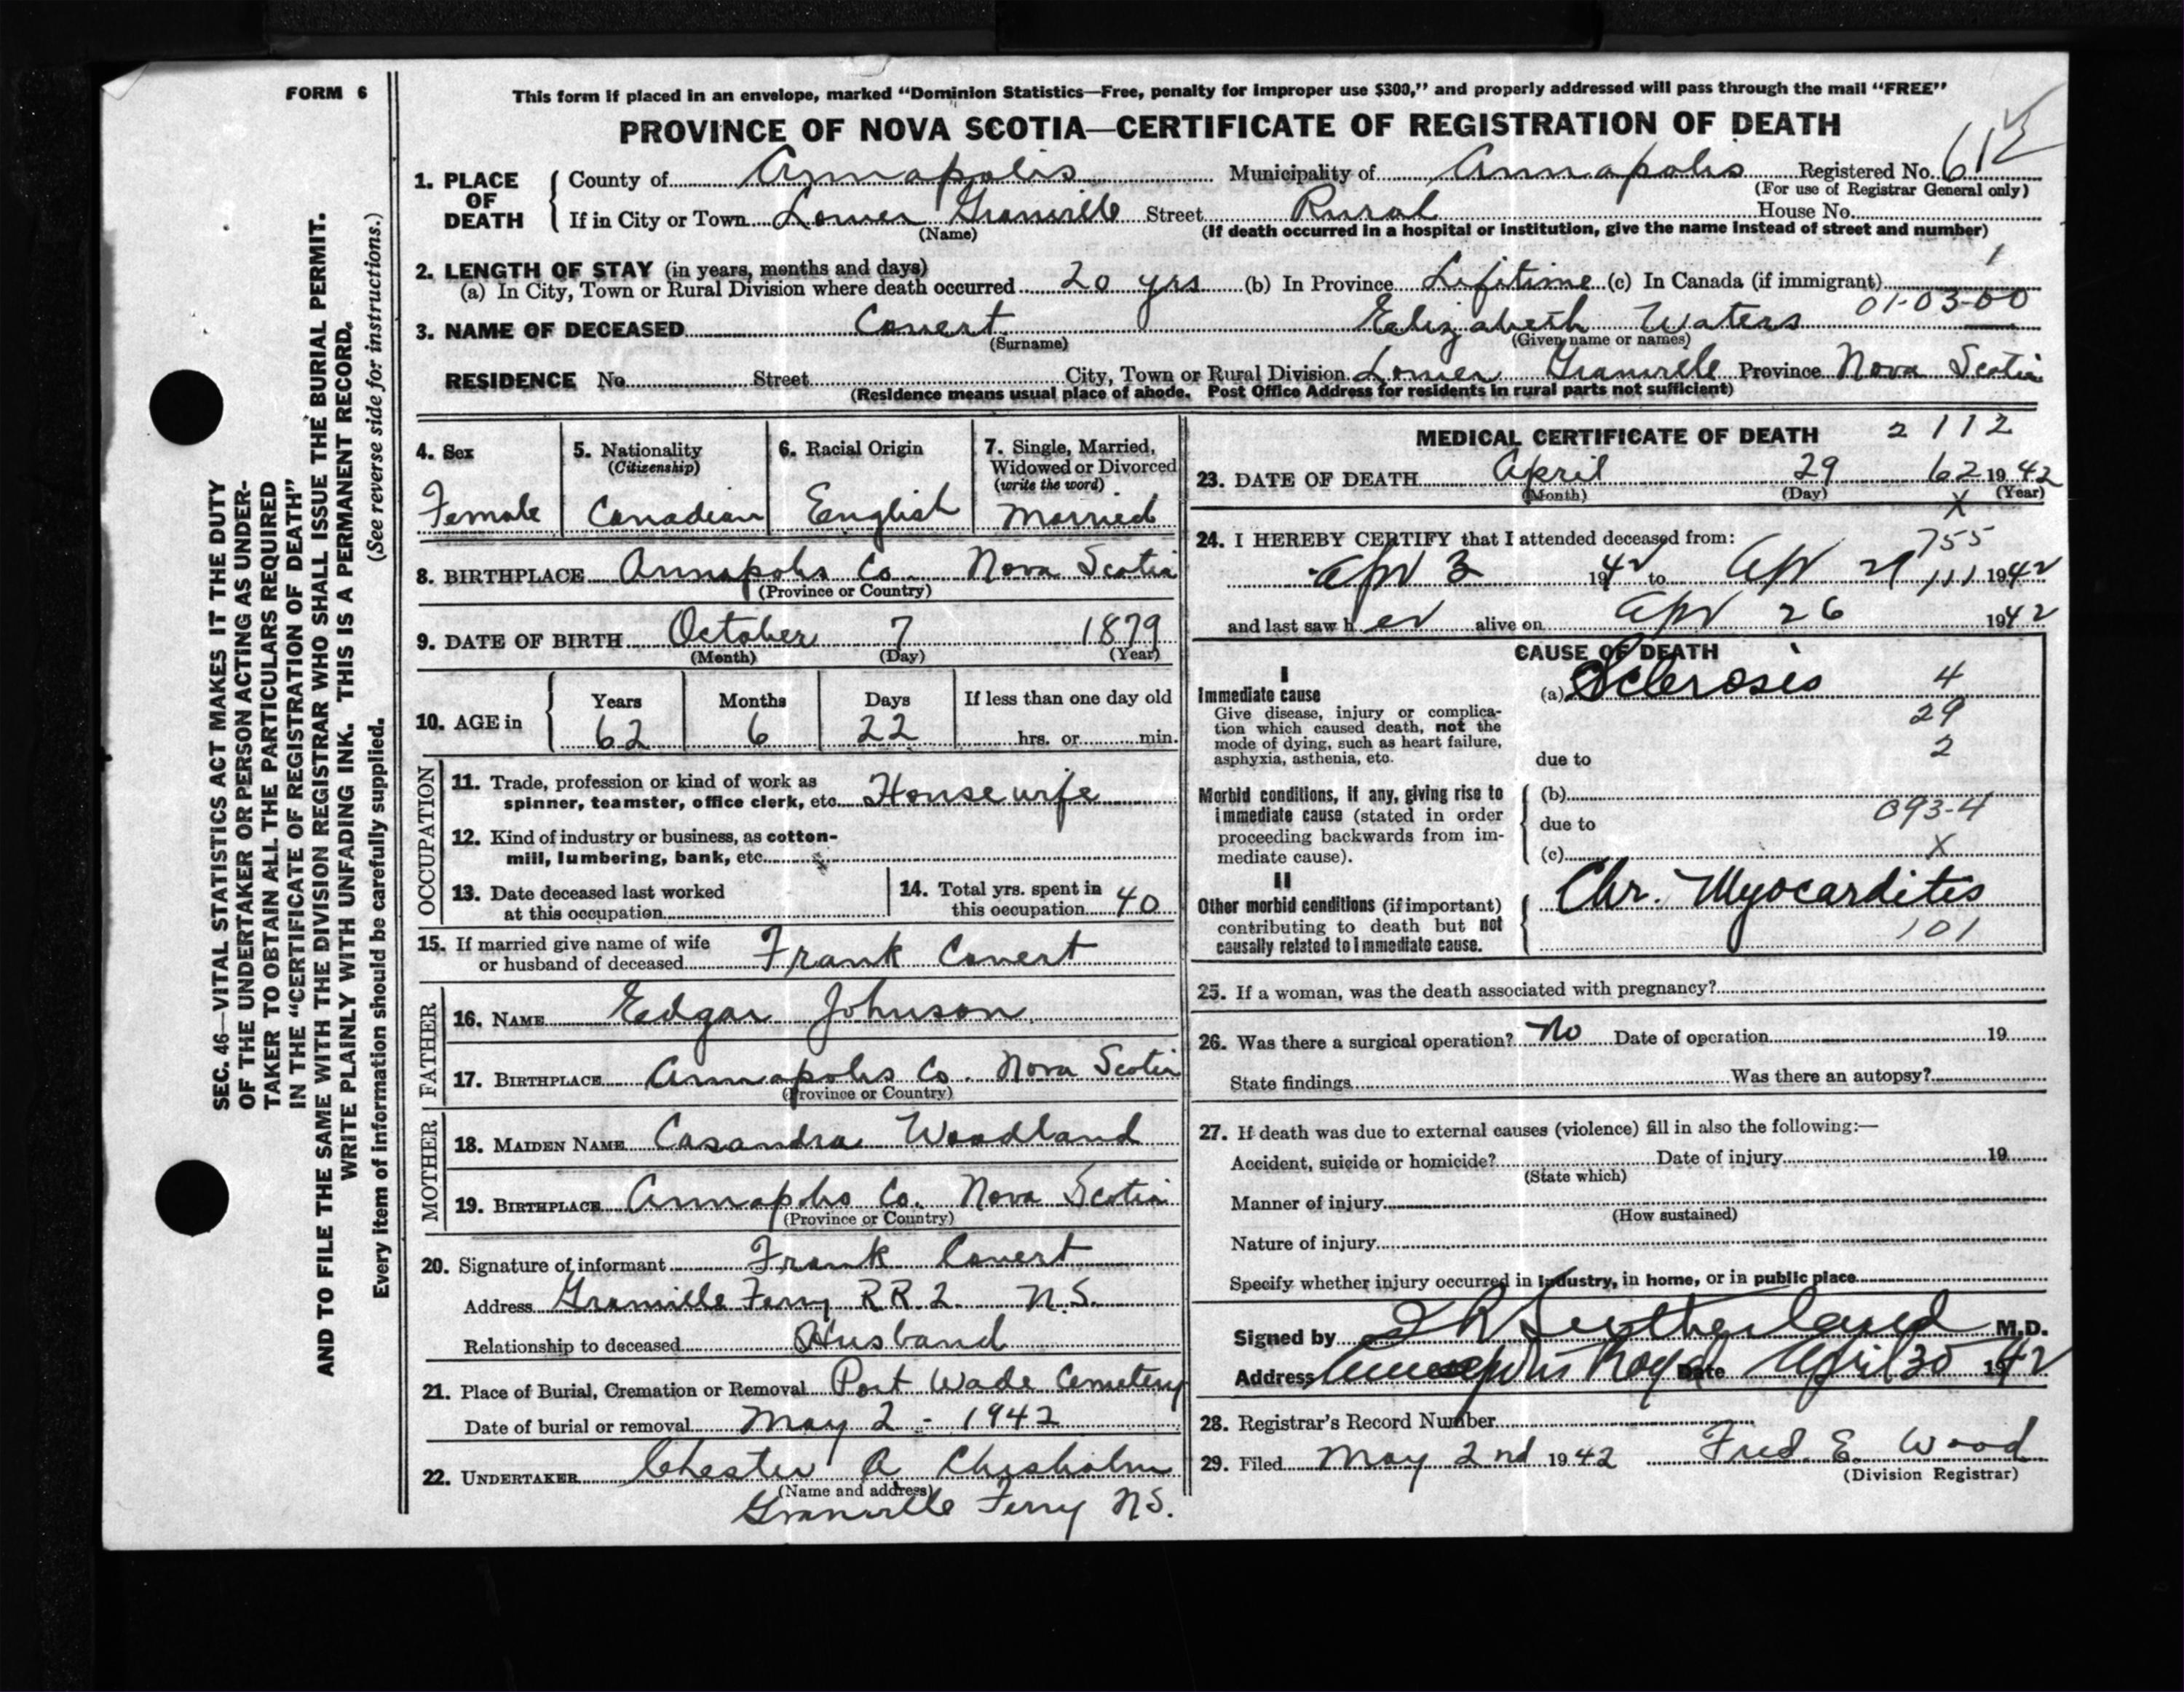 FORM 6
This form if placed in an envelope, marked “Dominion Statistics—Free, penalty for improper use $300,” and properly addressed will pass through the mail “FREE”
PROVINCE OF NOVA SCOTIA—CERTIFICATE OF REGISTRATION OF DEATH
1. PLACE OF DEATH
County of Annapolis Municipality of Annapolis Registered No. 612
(For use of Registrar General only)
If in City or Town Lower Granville Street Rural House No.
(Name) (If death occurred in a hospital or institution, give the name instead of street and number)
2. LENGTH OF STAY (in years, months and days) 1
(a) In City, Town or Rural Division where death occurred 20 yrs (b) In Province Lifetime (c) In Canada (if immigrant)
01-03-00
3. NAME OF DECEASED Covert Elizabeth Waters
(Surname) (Given name or names)
RESIDENCE No. Street City, Town or Rural Division Lower Granville Province Nova Scotia
(Residence means usual place of abode. Post Office Address for residents in rural parts not sufficient)
4. Sex
Female
5. Nationality
(Citizenship)
Canadian
6. Racial Origin
English
7. Single, Married,
Widowed or Divorced
(write the word)
Married
8. BIRTHPLACE Annapolis Co. Nova Scotia
(Province or Country)
9. DATE OF BIRTH October 7 1879
(Month) (Day) (Year)
10. AGE in
Years Months Days If less than one day old
62 6 22 hrs. or min.
OCCUPATION
11. Trade, profession or kind of work as
spinner, teamster, office clerk, etc. Housewife
12. Kind of industry or business, as cotton-
mill, lumbering, bank, etc.
13. Date deceased last worked
at this occupation
14. Total yrs. spent in
this occupation 40
15. If married give name of wife
or husband of deceased Frank Covert
FATHER
16. NAME Edgar Johnson
17. BIRTHPLACE Annapolis Co. Nova Scotia
(Province or Country)
MOTHER
18. MAIDEN NAME Casandra Woodland
19. BIRTHPLACE Annapolis Co. Nova Scotia
(Province or Country)
20. Signature of informant Frank Covert
Address Granville Ferry RR.2. N.S.
Relationship to deceased Husband
21. Place of Burial, Cremation or Removal Port Wade Cemetery
Date of burial or removal May 2 - 1942
22. UNDERTAKER Chester A Chisholm
(Name and address)
Granville Ferry N.S.
MEDICAL CERTIFICATE OF DEATH 2 112
23. DATE OF DEATH April 29 62 1942
(Month) (Day) (Year)
X
24. I HEREBY CERTIFY that I attended deceased from:
755
Apr 3 1942 to Apr 29 111 1942
and last saw her alive on Apr 26 1942
CAUSE OF DEATH
I
Immediate cause
Give disease, injury or complica-
tion which caused death, not the
mode of dying, such as heart failure,
asphyxia, asthenia, etc.
(a) Sclerosis 4
29
2
due to
Morbid conditions, if any, giving rise to
immediate cause (stated in order
proceeding backwards from im-
mediate cause).
(b)
due to 093-4
(c) X
II
Other morbid conditions (if important)
contributing to death but not
causally related to immediate cause.
Chr. Myocarditis
101
25. If a woman, was the death associated with pregnancy?
26. Was there a surgical operation? No Date of operation 19
State findings Was there an autopsy?
27. If death was due to external causes (violence) fill in also the following:—
Accident, suicide or homicide? Date of injury 19
(State which)
Manner of injury
(How sustained)
Nature of injury
Specify whether injury occurred in industry, in home, or in public place
Signed by Sutherland M.D.
Address Annapolis Royal Date April 30 1942
28. Registrar's Record Number
29. Filed May 2nd 1942 Fred. E. Wood
(Division Registrar)
SEC. 46—VITAL STATISTICS ACT MAKES IT THE DUTY
OF THE UNDERTAKER OR PERSON ACTING AS UNDER-
TAKER TO OBTAIN ALL THE PARTICULARS REQUIRED
IN THE “CERTIFICATE OF REGISTRATION OF DEATH”
AND TO FILE THE SAME WITH THE DIVISION REGISTRAR WHO SHALL ISSUE THE BURIAL PERMIT.
WRITE PLAINLY WITH UNFADING INK. THIS IS A PERMANENT RECORD.
Every item of information should be carefully supplied. (See reverse side for instructions.)